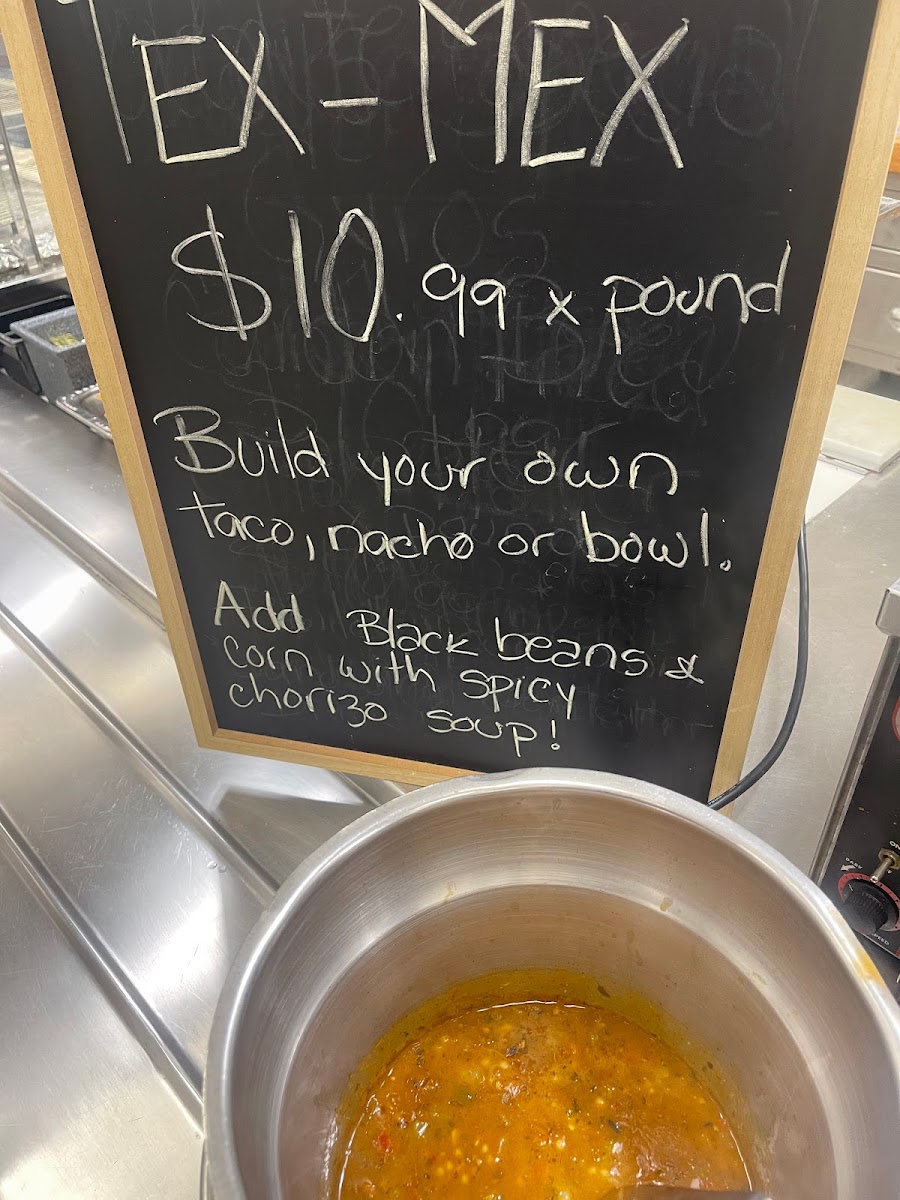 TEX-MEX
$10.99 x pound
Build your own
taco, nacho or bowl.
Add Black beans &
corn with spicy
chorizo soup!
DARK
SPEED